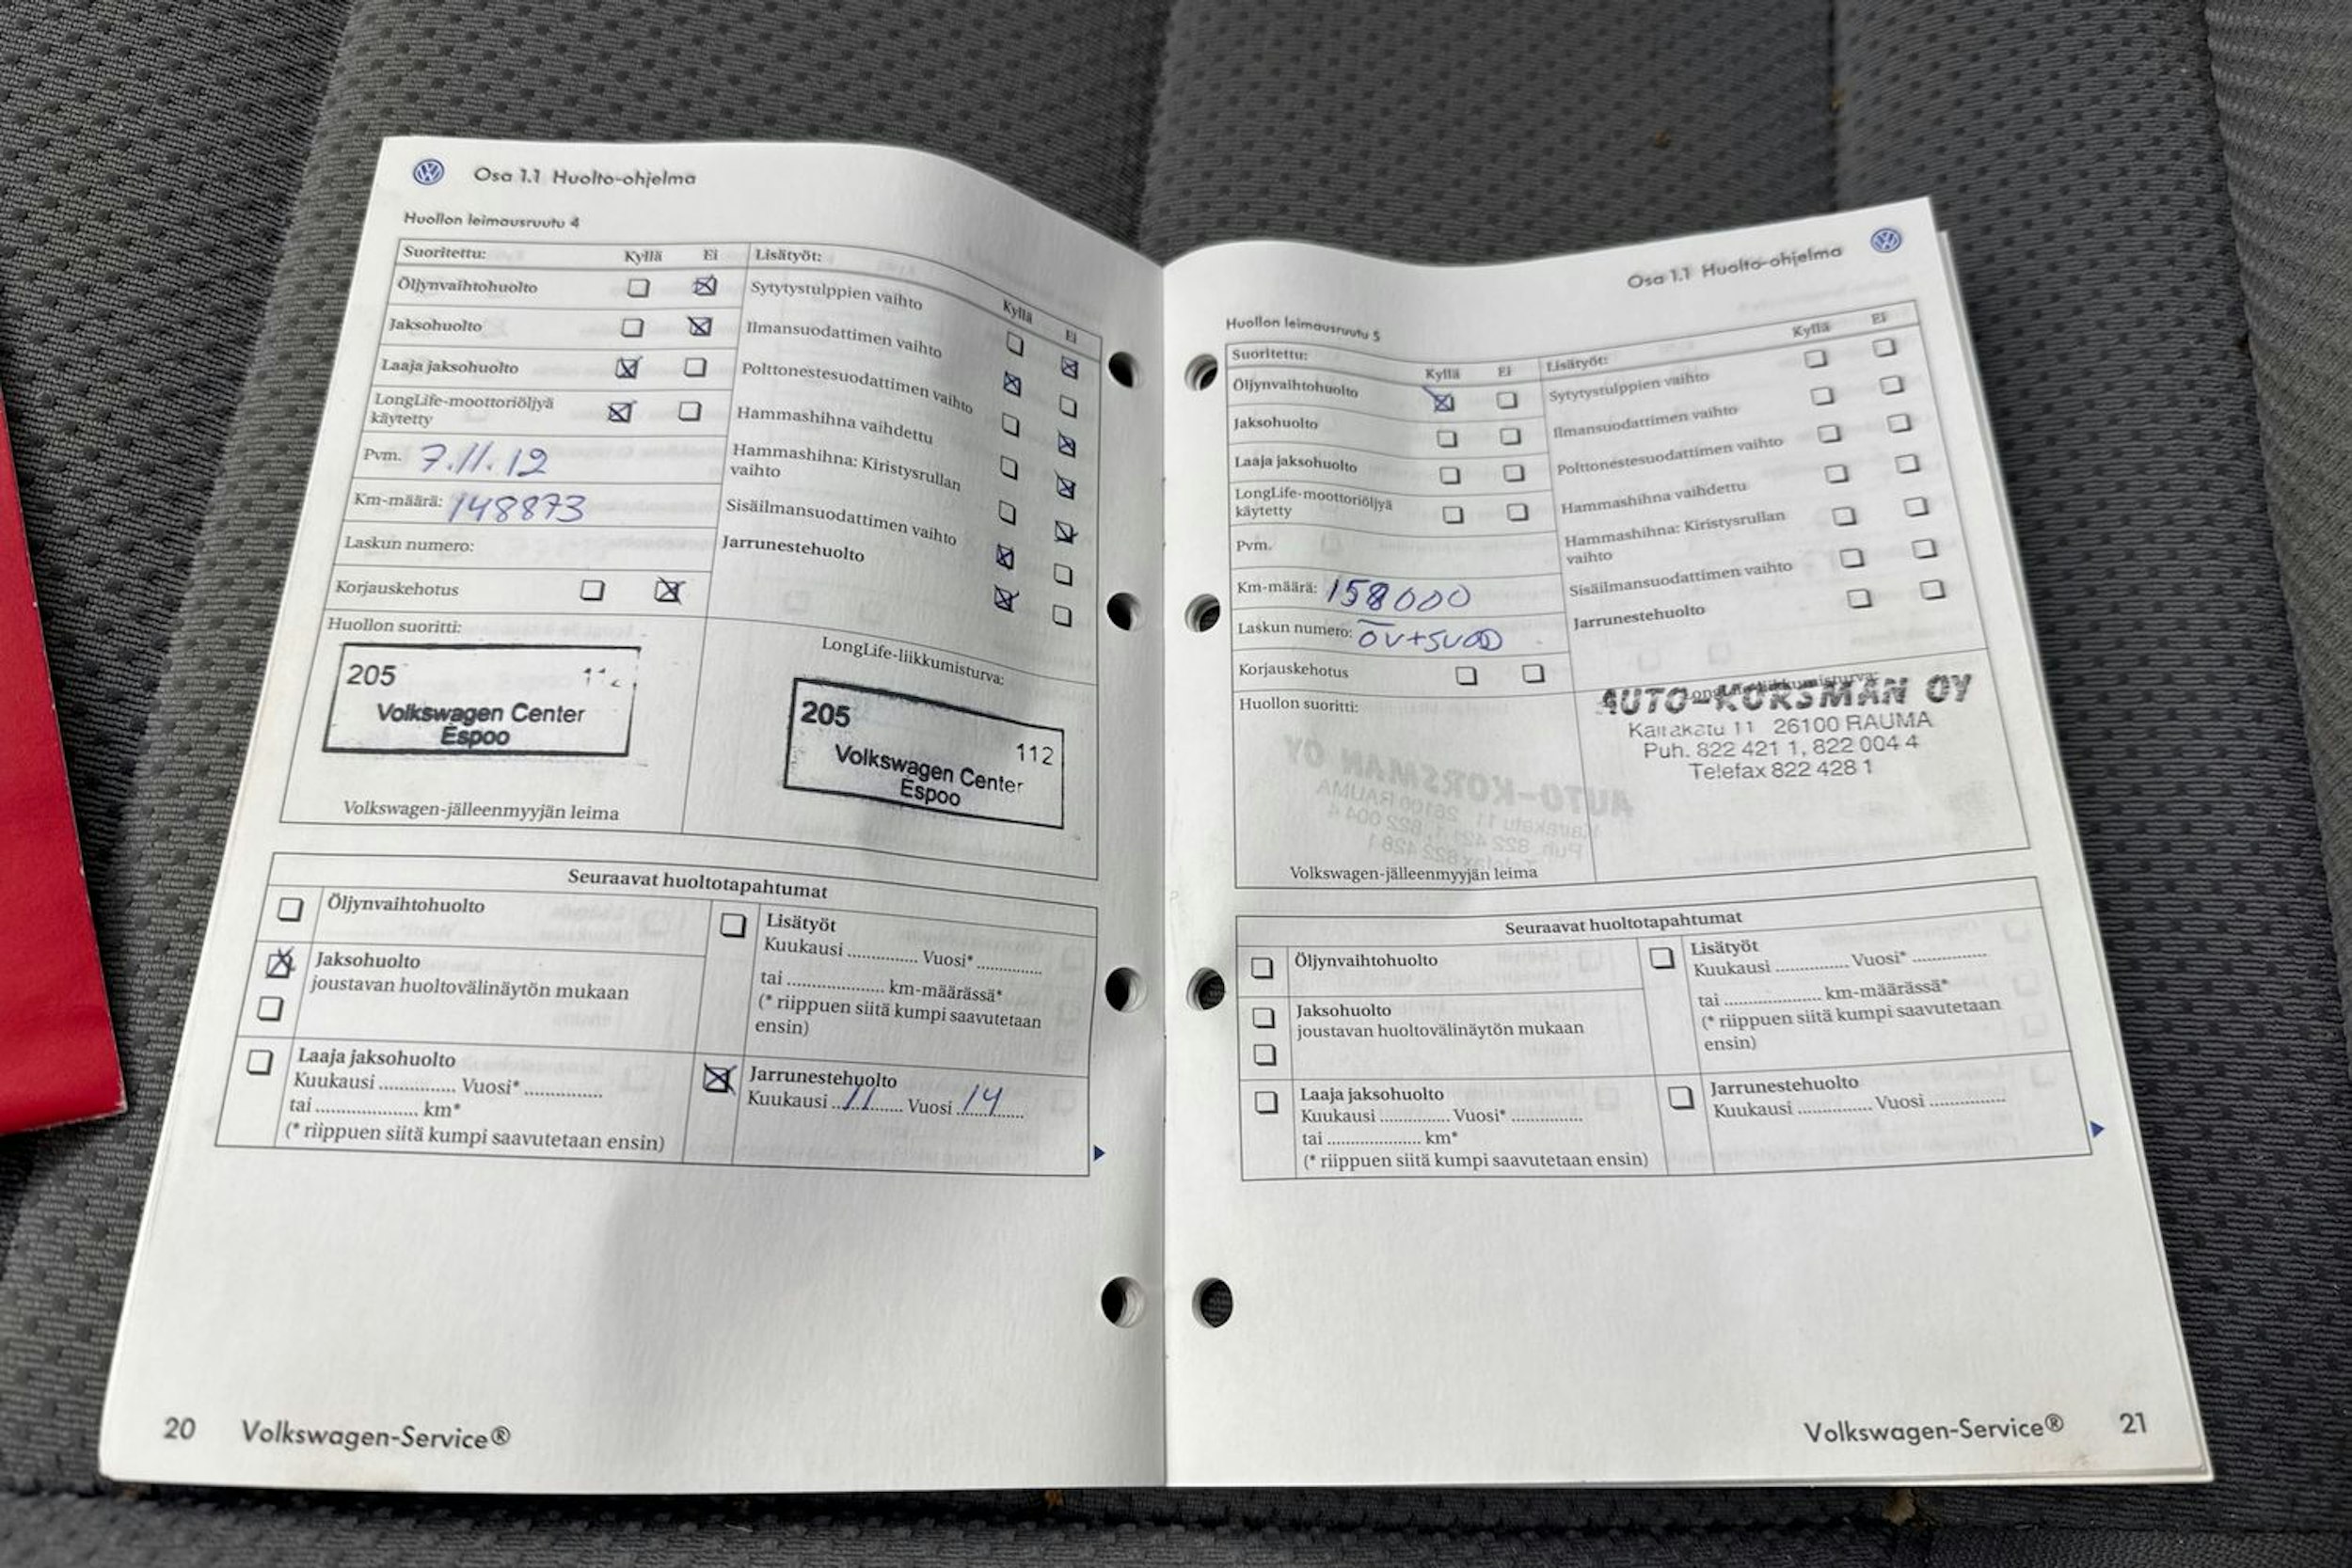 Osa 1.1 Huolto-ohjelma
Huollon leimausruutu 4
Suoritettu: Kyllä Ei
Öljynvaihtohuolto
Jaksohuolto
Laaja jaksohuolto
LongLife-moottoriöljyä
käytetty
Pvm. 7.11.12
Km-määrä: 148873
Laskun numero:
Korjauskehotus
Lisätyöt: Kyllä Ei
Sytytystulppien vaihto
Ilmansuodattimen vaihto
Polttonestesuodattimen vaihto
Hammashihna vaihdettu
Hammashihna: Kiristysrullan
vaihto
Sisäilmansuodattimen vaihto
Jarrunestehuolto
Huollon suoritti:
205
Volkswagen Center
Espoo
Volkswagen-jälleenmyyjän leima
LongLife-liikkumisturva:
205 112
Volkswagen Center
Espoo
Seuraavat huoltotapahtumat
Öljynvaihtohuolto
Jaksohuolto
joustavan huoltovälinäytön mukaan
Laaja jaksohuolto
Kuukausi .............. Vuosi* ..............
tai ................... km*
(* riippuen siitä kumpi saavutetaan ensin)
Lisätyöt
Kuukausi ............. Vuosi* .............
tai ................... km-määrässä*
(* riippuen siitä kumpi saavutetaan
ensin)
Jarrunestehuolto
Kuukausi 11 Vuosi 14
20 Volkswagen-Service®
Osa 1.1 Huolto-ohjelma
Huollon leimausruutu 5
Suoritettu: Kyllä Ei
Öljynvaihtohuolto
Jaksohuolto
Laaja jaksohuolto
LongLife-moottoriöljyä
käytetty
Pvm.
Km-määrä: 158000
Laskun numero: ÖV+SUOD
Korjauskehotus
Lisätyöt: Kyllä Ei
Sytytystulppien vaihto
Ilmansuodattimen vaihto
Polttonestesuodattimen vaihto
Hammashihna vaihdettu
Hammashihna: Kiristysrullan
vaihto
Sisäilmansuodattimen vaihto
Jarrunestehuolto
Huollon suoritti:
Volkswagen-jälleenmyyjän leima
LongLife-liikkumisturva:
AUTO-KORSMAN OY
Kairakatu 11 26100 RAUMA
Puh. 822 421 1, 822 004 4
Telefax 822 428 1
Seuraavat huoltotapahtumat
Öljynvaihtohuolto
Jaksohuolto
joustavan huoltovälinäytön mukaan
Laaja jaksohuolto
Kuukausi .............. Vuosi* .............
tai ................... km*
(* riippuen siitä kumpi saavutetaan ensin)
Lisätyöt
Kuukausi .............. Vuosi* ..............
tai ................... km-määrässä*
(* riippuen siitä kumpi saavutetaan
ensin)
Jarrunestehuolto
Kuukausi .............. Vuosi ..............
Volkswagen-Service® 21